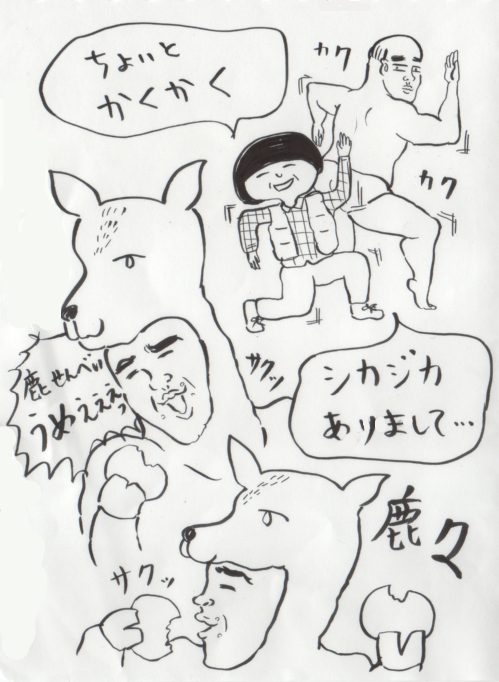 ちょいと
かくかく
カク
カク
シカジカ
ありまして…
サクッ
鹿せんべい
うめえええっ
鹿々
サクッ